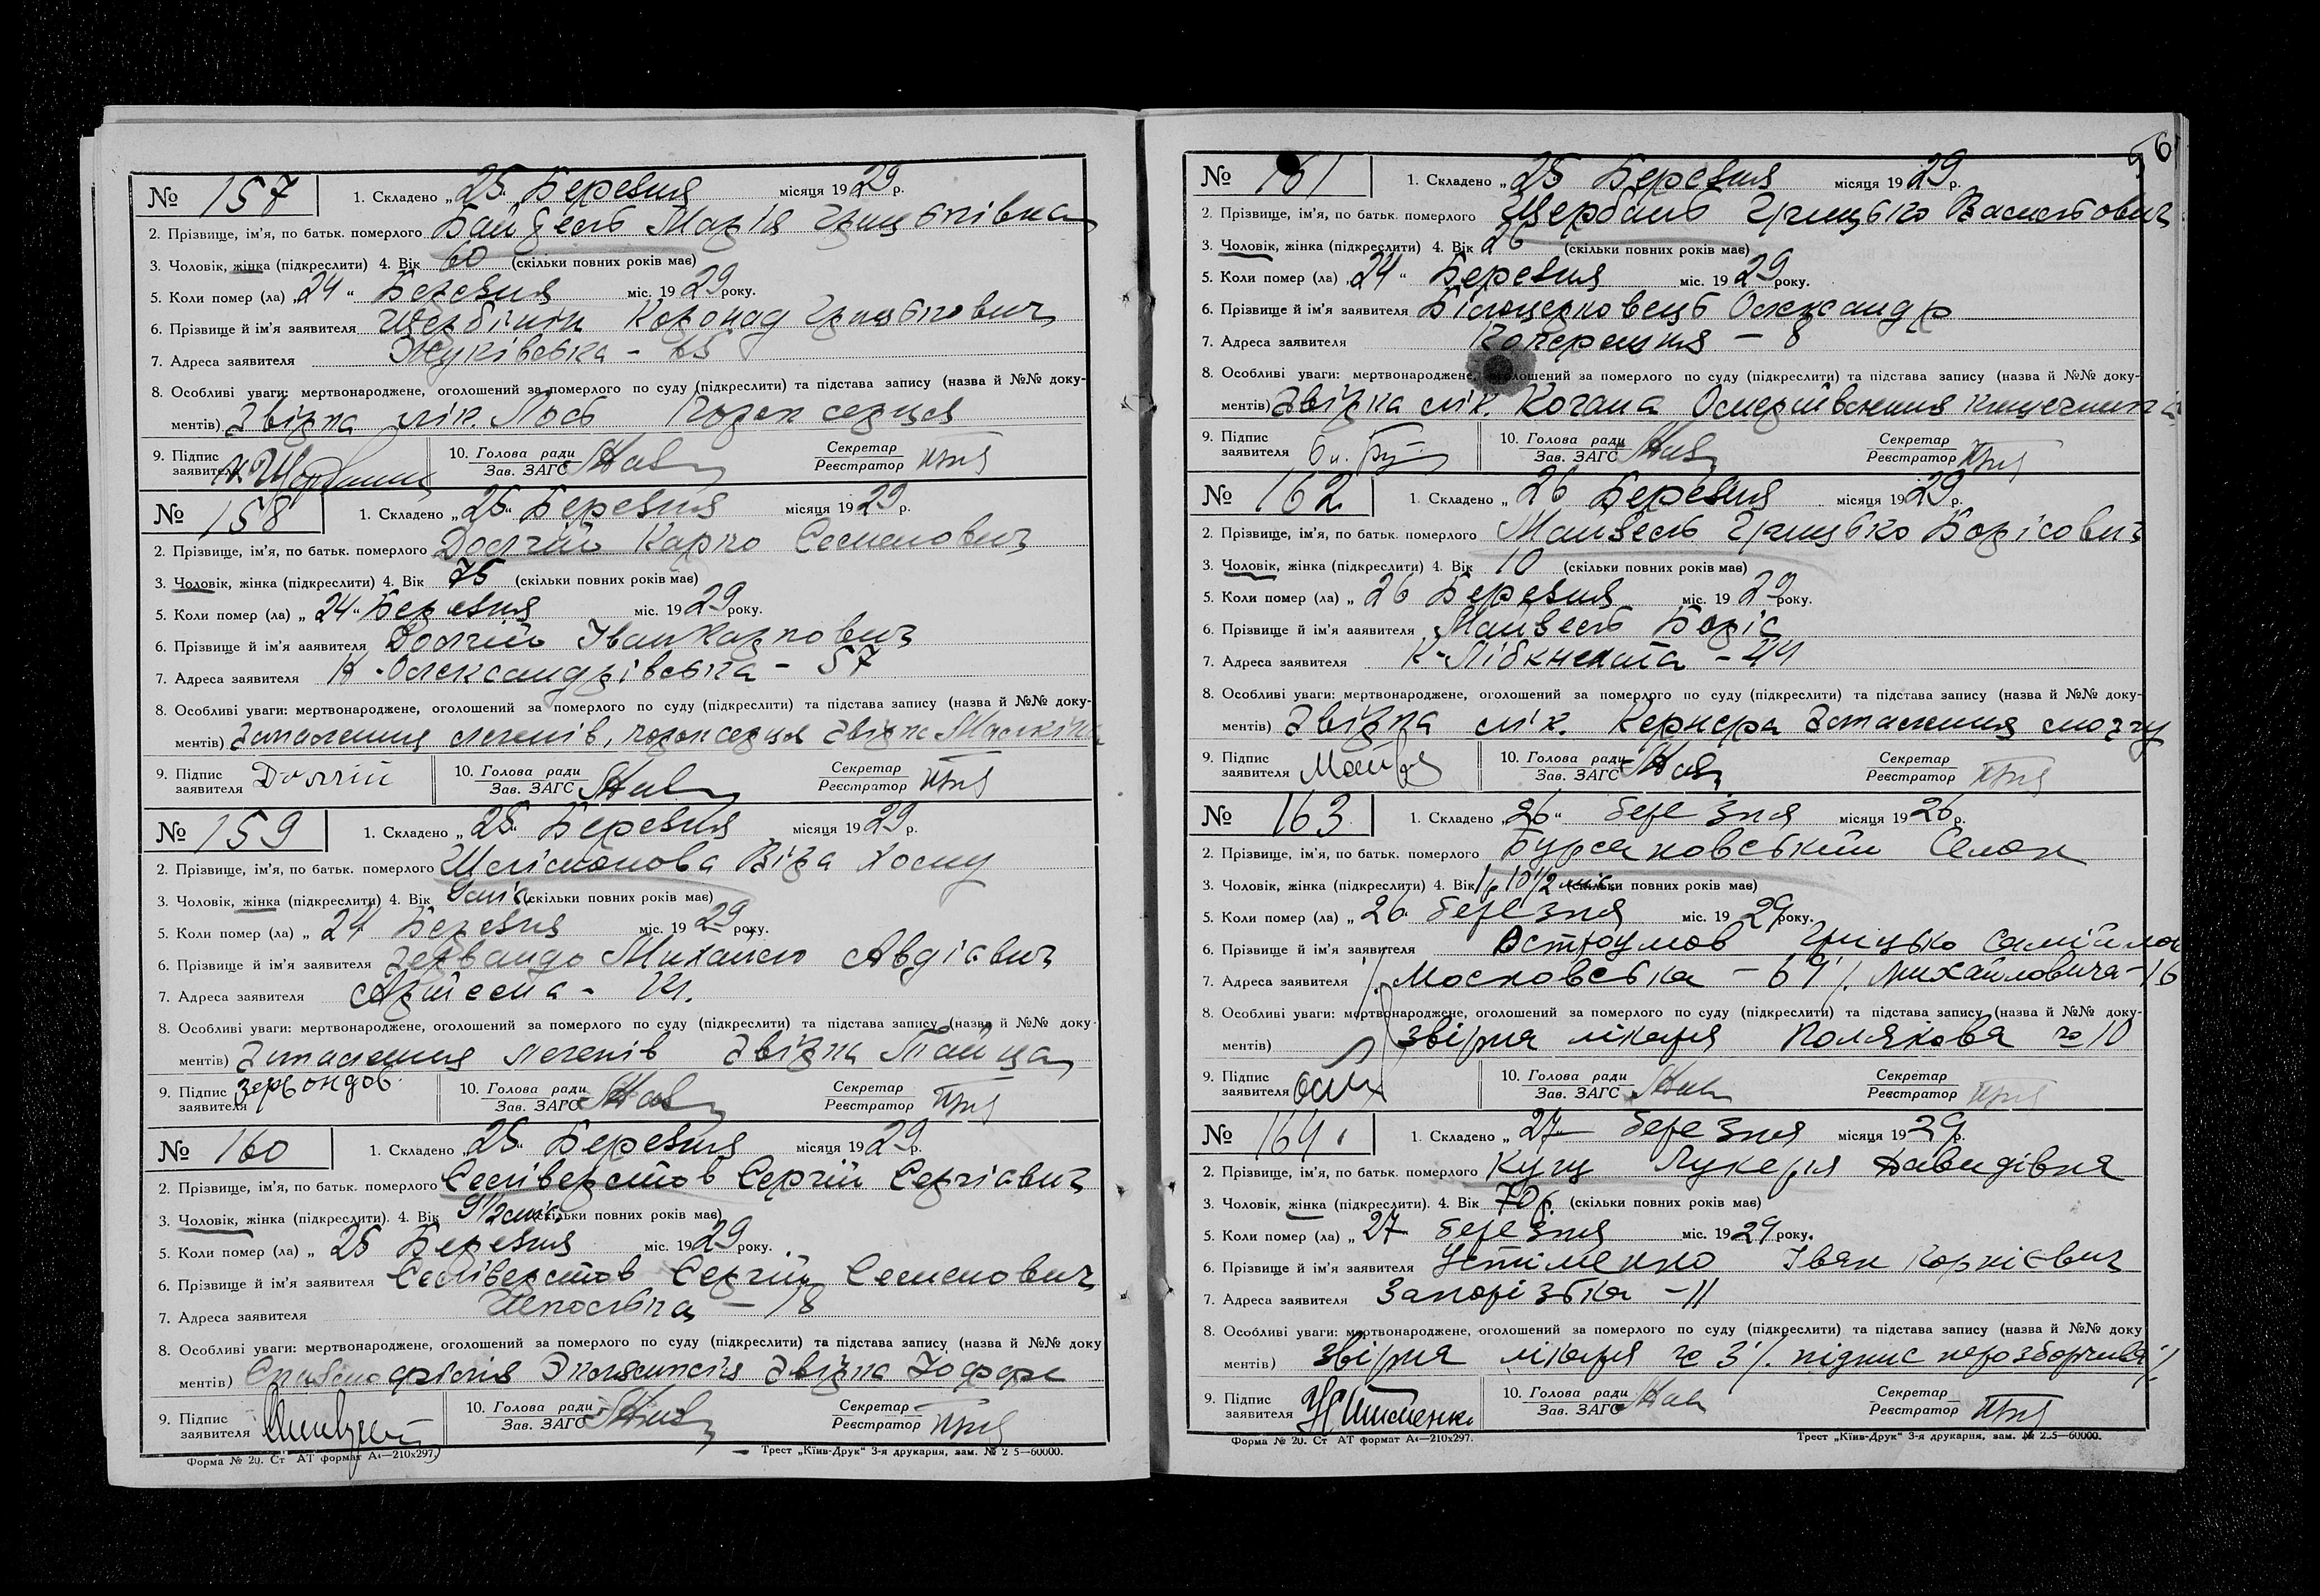 № 157 1. Складено „25“ Березня місяця 1929 р.
2. Прізвище, ім'я, по батьк. померлого Марія Грицьківна
3. Чоловік, жінка (підкреслити) 4. Вік 60 (скільки повних років має)
5. Коли помер (ла) „24“ Березня міс. 1929 року.
6. Прізвище й ім'я заявителя Щербінін Грицькович
7. Адреса заявителя Жуківська -
8. Особливі уваги: мертвонароджене, оголошений за померлого по суду (підкреслити) та підстава запису (назва й №№ доку-
ментів) Звідка лік. Лось Порок серця
9. Підпис заявителя 10. Голова ради Зав. ЗАГС Секретар Реєстратор
№ 158 1. Складено „25“ Березня місяця 1929 р.
2. Прізвище, ім'я, по батьк. померлого Долгий Карпо Семенович
3. Чоловік, жінка (підкреслити) 4. Вік 75 (скільки повних років має)
5. Коли помер (ла) „24“ Березня міс. 1929 року.
6. Прізвище й ім'я заявителя Долгий Іван Карпович
7. Адреса заявителя Н-Олександрівська - 57
8. Особливі уваги: мертвонароджене, оголошений за померлого по суду (підкреслити) та підстава запису (назва й №№ доку-
ментів) Запалення легенів, порок серця Звідка
9. Підпис заявителя Долгий 10. Голова ради Зав. ЗАГС Секретар Реєстратор
№ 159 1. Складено „25“ Березня місяця 1929 р.
2. Прізвище, ім'я, по батьк. померлого Віра
3. Чоловік, жінка (підкреслити) 4. Вік 9 міс. (скільки повних років має)
5. Коли помер (ла) „24 Березня міс. 1929 року.
6. Прізвище й ім'я заявителя Михайло Авдієвич
7. Адреса заявителя Артема -
8. Особливі уваги: мертвонароджене, оголошений за померлого по суду (підкреслити) та підстава запису (назва й №№ доку-
ментів) Запалення легенів Звідка
9. Підпис заявителя 10. Голова ради Зав. ЗАГС Секретар Реєстратор
№ 160 1. Складено „25“ Березня місяця 1929 р.
2. Прізвище, ім'я, по батьк. померлого Селіверстов Сергій Сергієвич
3. Чоловік, жінка (підкреслити). 4. Вік 9 1/2 міс. (скільки повних років має)
5. Коли помер (ла) „ 25 Березня міс. 1929 року.
6. Прізвище й ім'я заявителя Селіверстов Сергій Семенович
7. Адреса заявителя Шкоська - 18
8. Особливі уваги: мертвонароджене, оголошений за померлого по суду (підкреслити) та підстава запису (назва й №№ доку
ментів) Спазмофілія Эклямпсія Звідка Іоффе
9. Підпис заявителя 10. Голова ради Зав. ЗАГС Секретар Реєстратор
Форма № 20. Ст АТ формат А4—210х297. Трест „Київ-Друк“ 3-я друкарня, зам. № 2 5—60000.
6
№ 161 1. Складено „25 Березня місяця 1929 р.
2. Прізвище, ім'я, по батьк. померлого Щербань Грицько Васильович
3. Чоловік, жінка (підкреслити) 4. Вік 26 (скільки повних років має)
5. Коли помер (ла) „24“ Березня міс. 1929 року.
6. Прізвище й ім'я заявителя Білоцерковець Олександр
7. Адреса заявителя - 8
8. Особливі уваги: мертвонароджене, оголошений за померлого по суду (підкреслити) та підстава запису (назва й №№ доку-
ментів) Звідка лік. Когана Омертвлення кишечника
9. Підпис заявителя 10. Голова ради Зав. ЗАГС Секретар Реєстратор
№ 162 1. Складено „ 26 Березня місяця 1929 р.
2. Прізвище, ім'я, по батьк. померлого Манвель Грицько Борісович
3. Чоловік, жінка (підкреслити) 4. Вік 10 (скільки повних років має)
5. Коли помер (ла) „ 26 Березня міс. 1929 року.
6. Прізвище й ім'я заявителя Манвель Боріс
7. Адреса заявителя К-Лібкнехта - 44
8. Особливі уваги: мертвонароджене, оголошений за померлого по суду (підкреслити) та підстава запису (назва й №№ доку-
ментів) Звідка лік. Кернера Запалення мозгу
9. Підпис заявителя 10. Голова ради Зав. ЗАГС Секретар Реєстратор
№ 163 1. Складено „26“ березня місяця 1926 р.
2. Прізвище, ім'я, по батьк. померлого Бурсаковський
3. Чоловік, жінка (підкреслити) 4. Вік 1 р 10 1/2 міс. (скільки повних років має)
5. Коли помер (ла) „ 26 березня міс. 1929 року.
6. Прізвище й ім'я заявителя Остроумов Грицько Самійлов
7. Адреса заявителя /. Московська - 69 /. Михайловича - 16
8. Особливі уваги: мертвонароджене, оголошений за померлого по суду (підкреслити) та підстава запису (назва й №№ доку-
ментів) звідка лікаря Полякова № 10
9. Підпис заявителя 10. Голова ради Зав. ЗАГС Секретар Реєстратор
№ 164 1. Складено „27“ березня місяця 1929 р.
2. Прізвище, ім'я, по батьк. померлого Куц Лукерія Давидівна
3. Чоловік, жінка (підкреслити). 4. Вік 70 р. (скільки повних років має)
5. Коли помер (ла) „ 27 березня міс. 1929 року.
6. Прізвище й ім'я заявителя Устіменко Іван Корнієвич
7. Адреса заявителя Запорізька - 11
8. Особливі уваги: мертвонароджене, оголошений за померлого по суду (підкреслити) та підстава запису (назва й №№ доку
ментів) звідка лікаря № 3 /. підпис нерозборчива /.
9. Підпис заявителя 10. Голова ради Зав. ЗАГС Секретар Реєстратор
Форма № 20. Ст АТ формат А4—210х297. Трест „Київ-Друк“ 3-я друкарня, зам. № 2.5—60000.